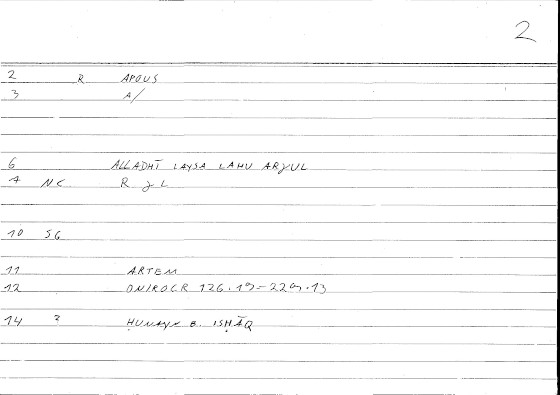 2
2 R APOUS
3 A/
6 ALLADHĪ LAYSA LAHU ARJUL
7 NC R J L
10 SG
11 ARTEM
12 ONIROCR 126.19-229.13
14 3 ḤUNAYN B. ISḤĀQ